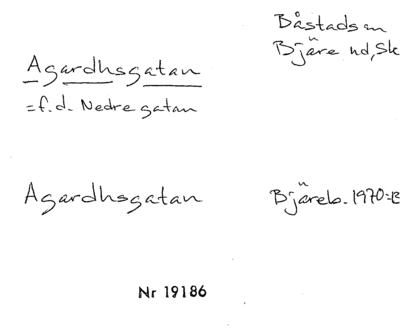 Båstads sn
Bjäre hd, Sk
Agardhsgatan
= f.d. Nedregatan
Agardhsgatan
Nr 19186